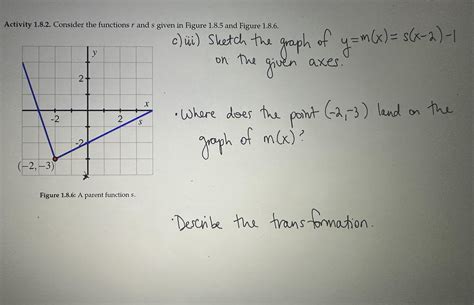 Activity 1.8.2. Consider the functions r and s given in Figure 1.8.5 and Figure 1.8.6.
c) iii) Sketch the graph of y=m(x)= s(x-2)-1
on the given axes.
y
2
x
-2
2
s
-2
(−2,−3)
Figure 1.8.6: A parent function s.
· Where does the point (-2,-3) land on the
graph of m(x)?
· Describe the transformation.